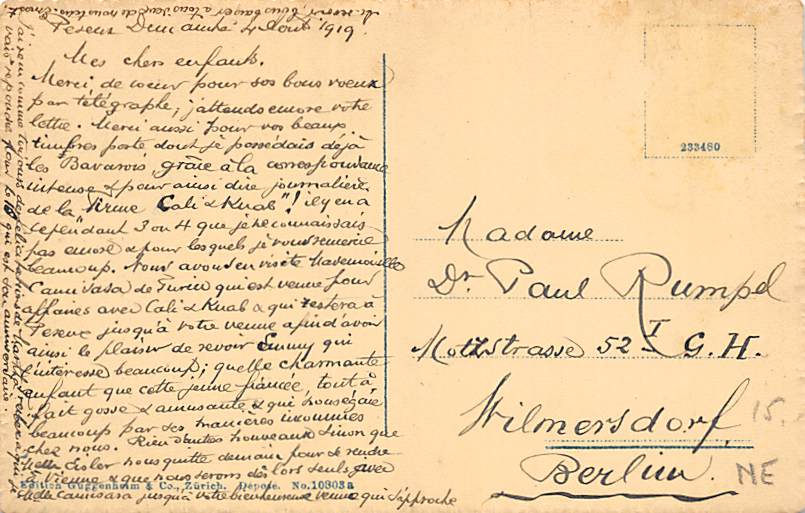 Peseux Dimanche 4 Août 1919.
Mes chers enfants.
Merci de coeur pour vos bons voeux
par télégraphe, j'attends encore votre
lettre. Merci aussi pour vos beaux
timbres poste dont je possédais déjà
les Bavarois, grâce à la correspondance
intense & pour ainsi dire journalière
de la "Firme Cali & Knab"! il y en a
cependant 3 ou 4 que je ne connaissais
pas encore & pour lesquels je vous remercie
beaucoup. Nous avons en visite Mademoiselle
de Turin qui est venue pour
affaires avec Cali & Knab & qui restera à
Peseux jusqu'à votre venue afin d'avoir
ainsi le plaisir de revoir Emmy qui
l'intéresse beaucoup; quelle charmante
enfant que cette jeune fiancée, tout à
fait gosse & amusante & qui nous égaie
beaucoup par ses manières inconnues
chez nous. Rien d'autres nouveaux sinon que
Melle Eisler nous quitte demain pour se rendre
à Vienne & que nous serons dès lors seuls avec
Melle jusqu'à votre bienheureuse venue qui s'approche
Edition Guggenheim & Co., Zürich. Déposé. No. 10803a
233460
Madame
Dr Paul Rumpel
Motzstrasse 52 I G. H.
Wilmersdorf
Berlin.
15.
NE